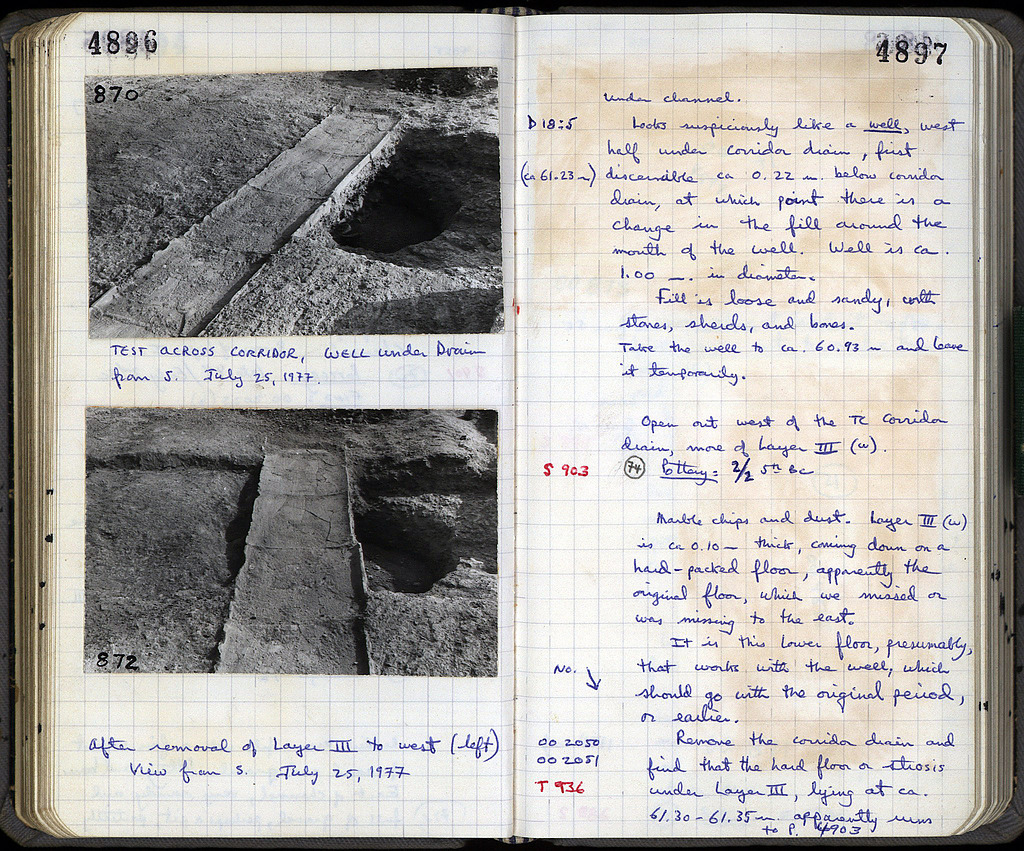 4896
870
TEST ACROSS CORRIDOR, WELL under Drain
from S. July 25, 1977.
872
After removal of Layer III to west (left)
View from S. July 25, 1977
4897
under channel.
D 18:5 Looks suspiciously like a well, west
half under corridor drain, first
(ca 61.23 m) discernible ca 0.22 m. below corridor
drain, at which point there is a
change in the fill around the
mouth of the well. Well is ca.
1.00 m. in diameter.
Fill is loose and sandy, with
stones, sherds, and bones.
Take the well to ca. 60.93 m and leave
it temporarily.
Open out west of the TC Corridor
drain, more of Layer III (w).
S 903 74 Pottery: 2/2 5th BC
Marble chips and dust. Layer III (w)
is ca 0.10 m thick, coming down on a
hard-packed floor, apparently the
original floor, which we missed or
was missing to the east.
It is this lower floor, presumably,
No. that works with the well, which
should go with the original period,
or earlier.
OO 2050 Remove the corridor drain and
OO 2051 find that the hard floor or stosis
T 936 under Layer III, lying at ca.
61.30 - 61.35 m. apparently runs
to P. 4903